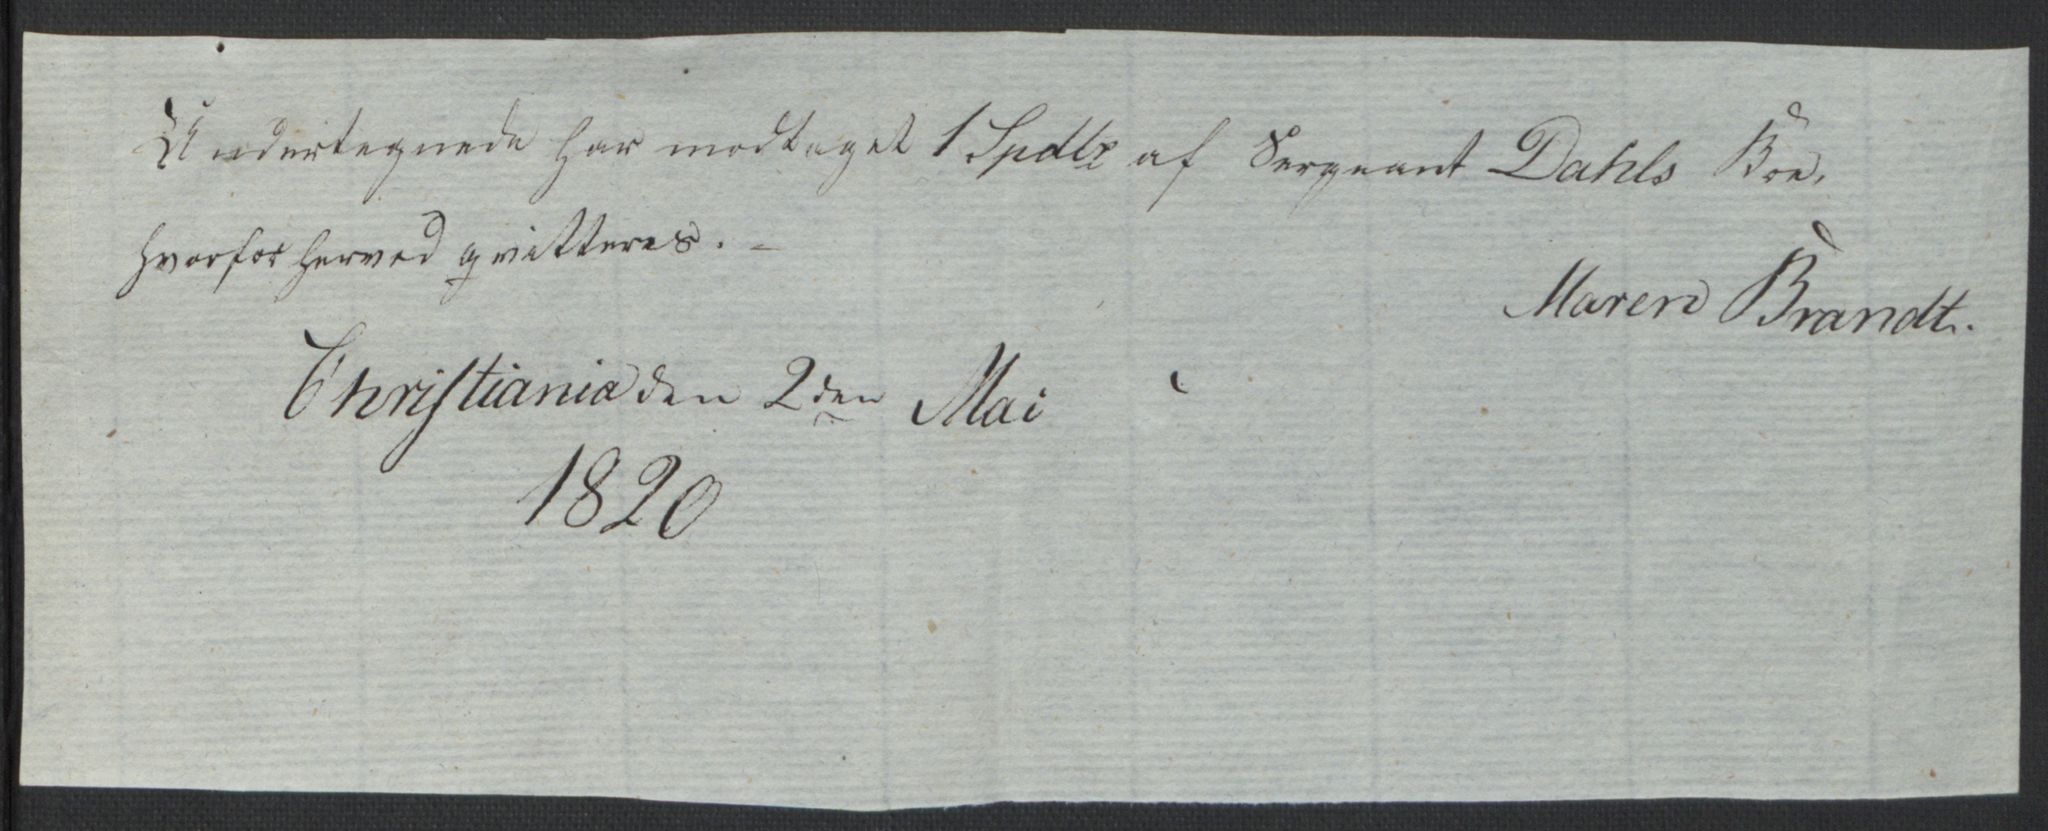 Undertegnede har modtaget 1 Spdlr af Sergeant Dahls Boe,
hvorfor herved qvitteres. –
Maren Brandt.
Christiania den 2den Mai
1820